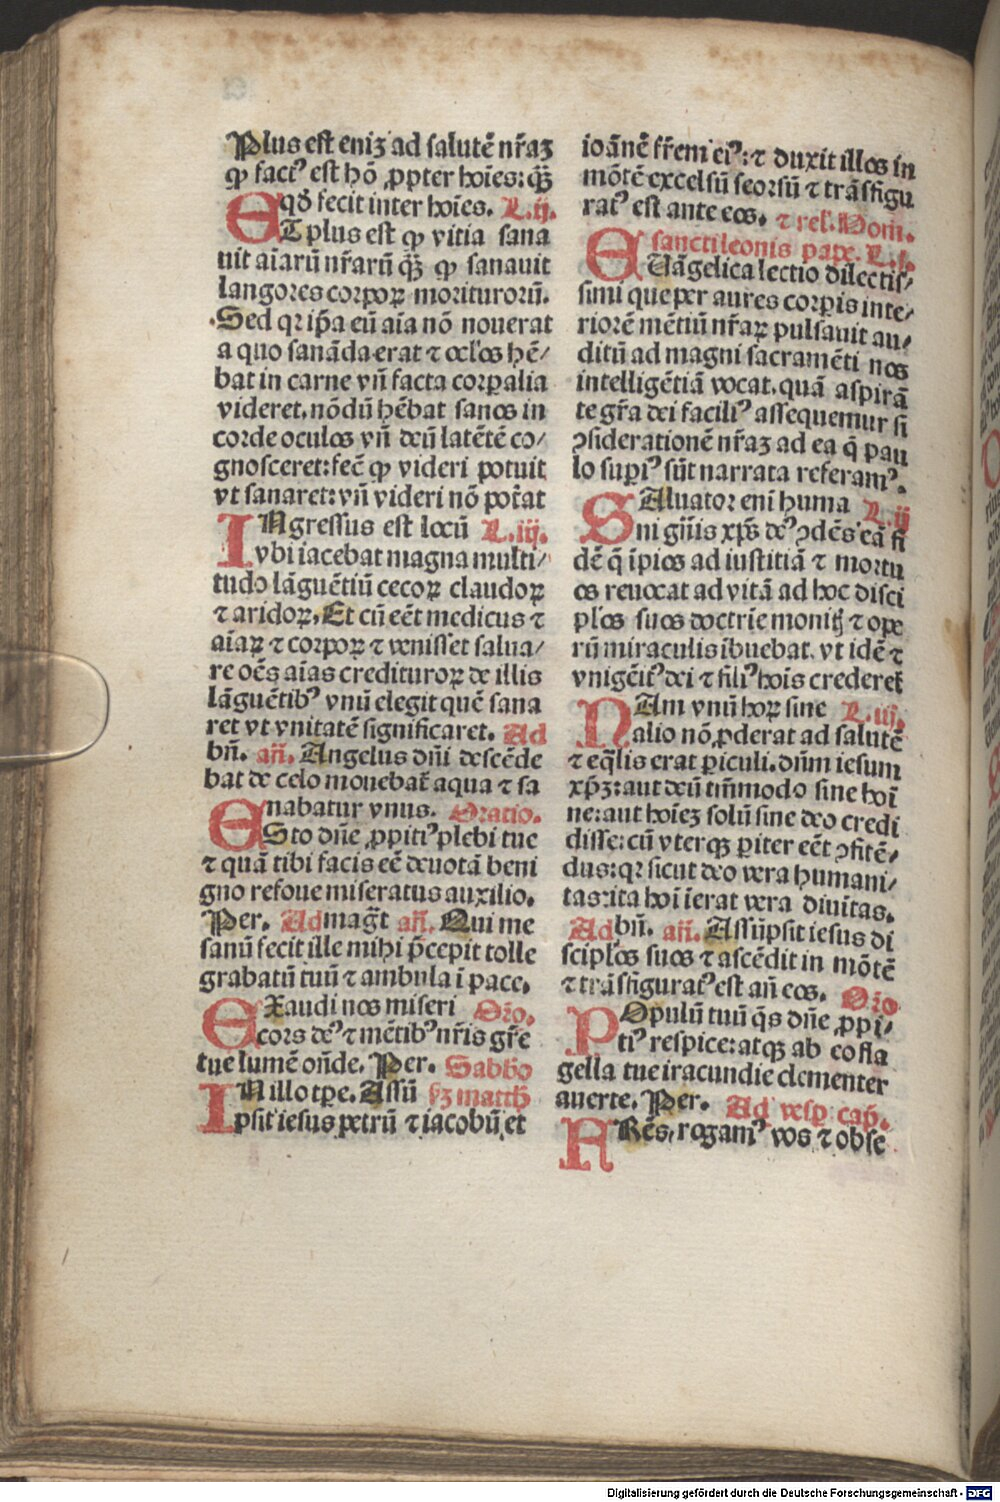 Plus est eniz ad salutē nr̄az
ꝙ factꝰ est hō ꝓpter hoīes: qȝ̄
qđ fecit inter hoīes. L. ij.
ET plus est ꝙ vitia sana
uit aīarū nr̄arū qȝ̄ ꝙ sanauit
langores corpoꝝ moriturorū.
Sed qꝛ ip̄a eū aīa nō nouerat
a quo sanāda erat ⁊ ocl'os hē/
bat in carne vn̄ facta corꝑalia
videret, nōdū hēbat sanos in
corde oculos vn̄ deū latētē co/
gnosceret: fec̄ ꝙ videri potuit
vt sanaret: vn̄ videri nō pot̄at
INgressus est locū L. iij.
vbi iacebat magna multi/
tudo lāguētiū cecoꝝ claudoꝝ
⁊ aridoꝝ, Et cū eēt medicus ⁊
aīaꝝ ⁊ corpoꝝ ⁊ venisset salua/
re oēs aīas credituroꝝ de illis
lāguētibꝰ vnū elegit quē sana
ret vt vnitatē significaret. Ad
bn̄. an̄. Angelus dn̄i descēde
bat de celo mouebat̄ aqua ⁊ sa
nabatur vnus. Oratio.
ESto dn̄e ꝓpitiꝰ plebi tue
⁊ quā tibi facis eē deuotā beni
gno refoue miseratus auxilio.
Per. Ad magt̄ an̄. Qui me
sanū fecit ille mihi p̄cepit tolle
grabatū tuū ⁊ ambula ī pace.
EXaudi nos miseri Or̄o.
cors deꝰ ⁊ mētibꝰ nr̄is gr̄e
tue lumē on̄de. Per. Sabbo
IN illo tꝑe. Assū sꝫ matth
psit iesus petrū ⁊ iacobū et
ioānē fr̄em eiꝰ: ⁊ duxit illos in
mōtē excelsū seorsū ⁊ trāsfigu
ratꝰ est ante eos. ⁊ rel. Dom̄.
sancti leonis pape. L. j.
EUāgelica lectio dilectis/
simi que per aures corꝑis inte/
riorē mētiū nr̄aꝝ pulsauit au/
ditū ad magni sacramēti nos
intelligētiā vocat, quā aspirā
te gr̄a dei faciliꝰ assequemur si
ↄsiderationē nr̄az ad ea q̄ pau
lo supiꝰ sūt narrata referamꝰ.
SAluator enī huma L. ij
ni gn̄is xp̄s deꝰ ↄdēs eā fi
dē q̄ īpios ad iustitiā ⁊ mortu
os reuocat ad vitā ad hoc disci
pl'os suos doctrīe monitꝭ ⁊ ope
rū miraculis ībuebat, vt idē ⁊
vnigēitꝰ dei ⁊ filiꝰ hoīs crederet̄
NAm vnū hoꝝ sine L. iij.
alio nō ꝓderat ad salutē
⁊ eq̄lis erat ꝑiculi, dn̄m iesum
xp̄ꝫ: aut deū tm̄modo sine hoī
ne: aut hoīez solū sine deo credi
disse: cū vterqꝫ ꝑiter eēt ↄfitē/
dus: qꝛ sicut deo vera humani/
tas: ita hoī īerat vera diuītas.
Ad bn̄. an̄. Assūpsit iesus di
scipl'os suos ⁊ ascēdit in mōtē
⁊ trāsfiguratꝰ est an̄ eos. Or̄o
POpulū tuū q̄s dn̄e ꝓpi/
tiꝰ respice: atqꝫ ab eo fla
gella tue iracundie clementer
auerte. Per. Ad vesꝑ cap̄.
FRēs, rogamꝰ vos ⁊ obse
Digitalisierung gefördert durch die Deutsche Forschungsgemeinschaft - DFG